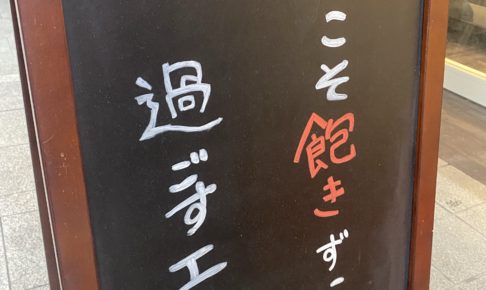 こそ飽きず
過ごす工